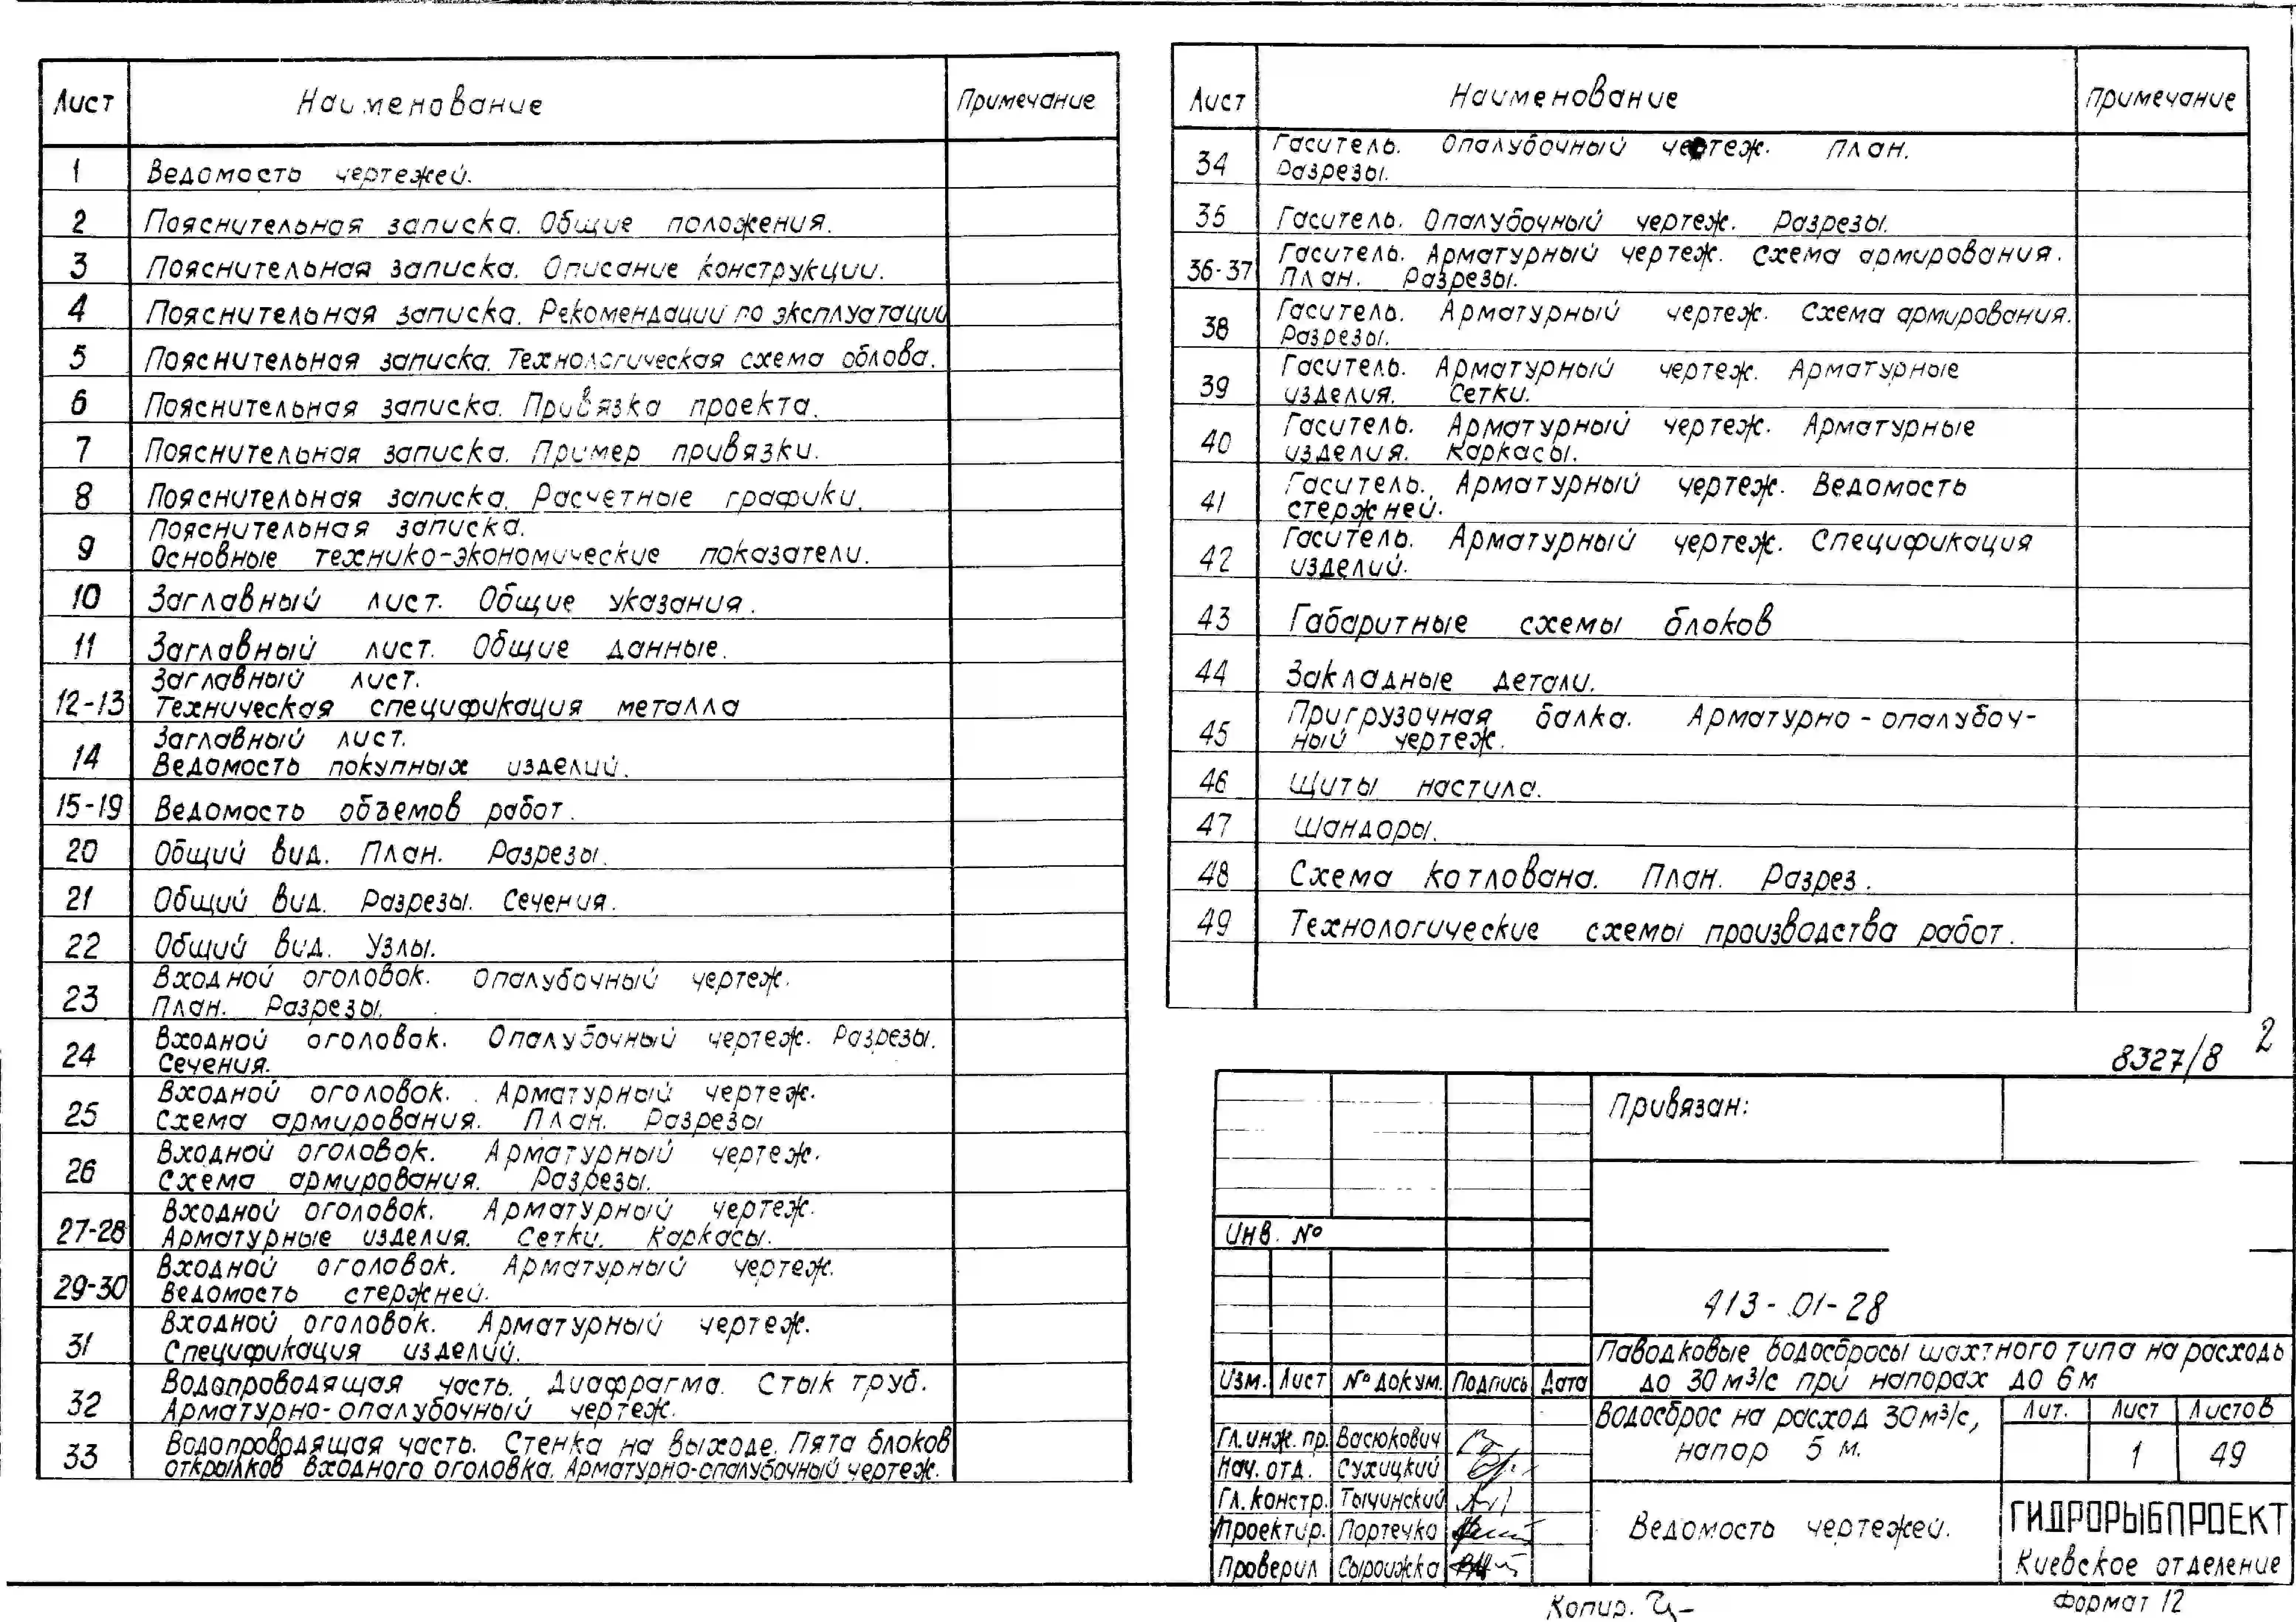 Лист Наименование Примечание
1 Ведомость чертежей.
2 Пояснительная записка. Общие положения.
3 Пояснительная записка. Описание конструкции.
4 Пояснительная записка. Рекомендации по эксплуатации
5 Пояснительная записка. Технологическая схема облова.
6 Пояснительная записка. Привязка проекта.
7 Пояснительная записка. Пример привязки.
8 Пояснительная записка. Расчетные графики.
9 Пояснительная записка.
Основные технико-экономические показатели.
10 Заглавный лист. Общие указания.
11 Заглавный лист. Общие данные.
12-13 Заглавный лист.
Техническая спецификация металла
14 Заглавный лист.
Ведомость покупных изделий.
15-19 Ведомость объемов работ.
20 Общий вид. План. Разрезы.
21 Общий вид. Разрезы. Сечения.
22 Общий вид. Узлы.
23 Входной оголовок. Опалубочный чертеж.
План. Разрезы.
24 Входной оголовок. Опалубочный чертеж. Разрезы.
Сечения.
25 Входной оголовок. Арматурный чертеж.
Схема армирования. План. Разрезы
26 Входной оголовок. Арматурный чертеж.
Схема армирования. Разрезы.
27-28 Входной оголовок. Арматурный чертеж.
Арматурные изделия. Сетки. Каркасы.
29-30 Входной оголовок. Арматурный чертеж.
Ведомость стержней.
31 Входной оголовок. Арматурный чертеж.
Спецификация изделий.
32 Водопроводящая часть. Диафрагма. Стык труб.
Арматурно-опалубочный чертеж.
33 Водопроводящая часть. Стенка на выходе. Пята блоков
открылков входного оголовка. Арматурно-опалубочный чертеж.
Лист Наименование Примечание
34 Гаситель. Опалубочный чертеж. План.
Разрезы.
35 Гаситель. Опалубочный чертеж. Разрезы.
36-37 Гаситель. Арматурный чертеж. Схема армирования.
План. Разрезы.
38 Гаситель. Арматурный чертеж. Схема армирования.
Разрезы.
39 Гаситель. Арматурный чертеж. Арматурные
изделия. Сетки.
40 Гаситель. Арматурный чертеж. Арматурные
изделия. Каркасы.
41 Гаситель. Арматурный чертеж. Ведомость
стержней.
42 Гаситель. Арматурный чертеж. Спецификация
изделий.
43 Габаритные схемы блоков
44 Закладные детали.
45 Пригрузочная балка. Арматурно-опалубоч-
ный чертеж.
46 Щиты настила.
47 Шандоры.
48 Схема котлована. План. Разрез.
49 Технологические схемы производства работ.
8327/8 2
Привязан:
Инв. №
413-01-28
Паводковые водосбросы шахтного типа на расходы
до 30 м³/с при напорах до 6 м
Изм. Лист № докум. Подпись Дата
Водосброс на расход 30 м³/с,
напор 5 м.
Лит. Лист Листов
1 49
Гл. инж. пр. Васюкович
Нач. отд. Сухицкий
Гл. констр. Тычинский
Проектир. Портечко
Проверил Сыроижка
Ведомость чертежей.
ГИДРОРЫБПРОЕКТ
Киевское отделение
Копир.
Формат 12